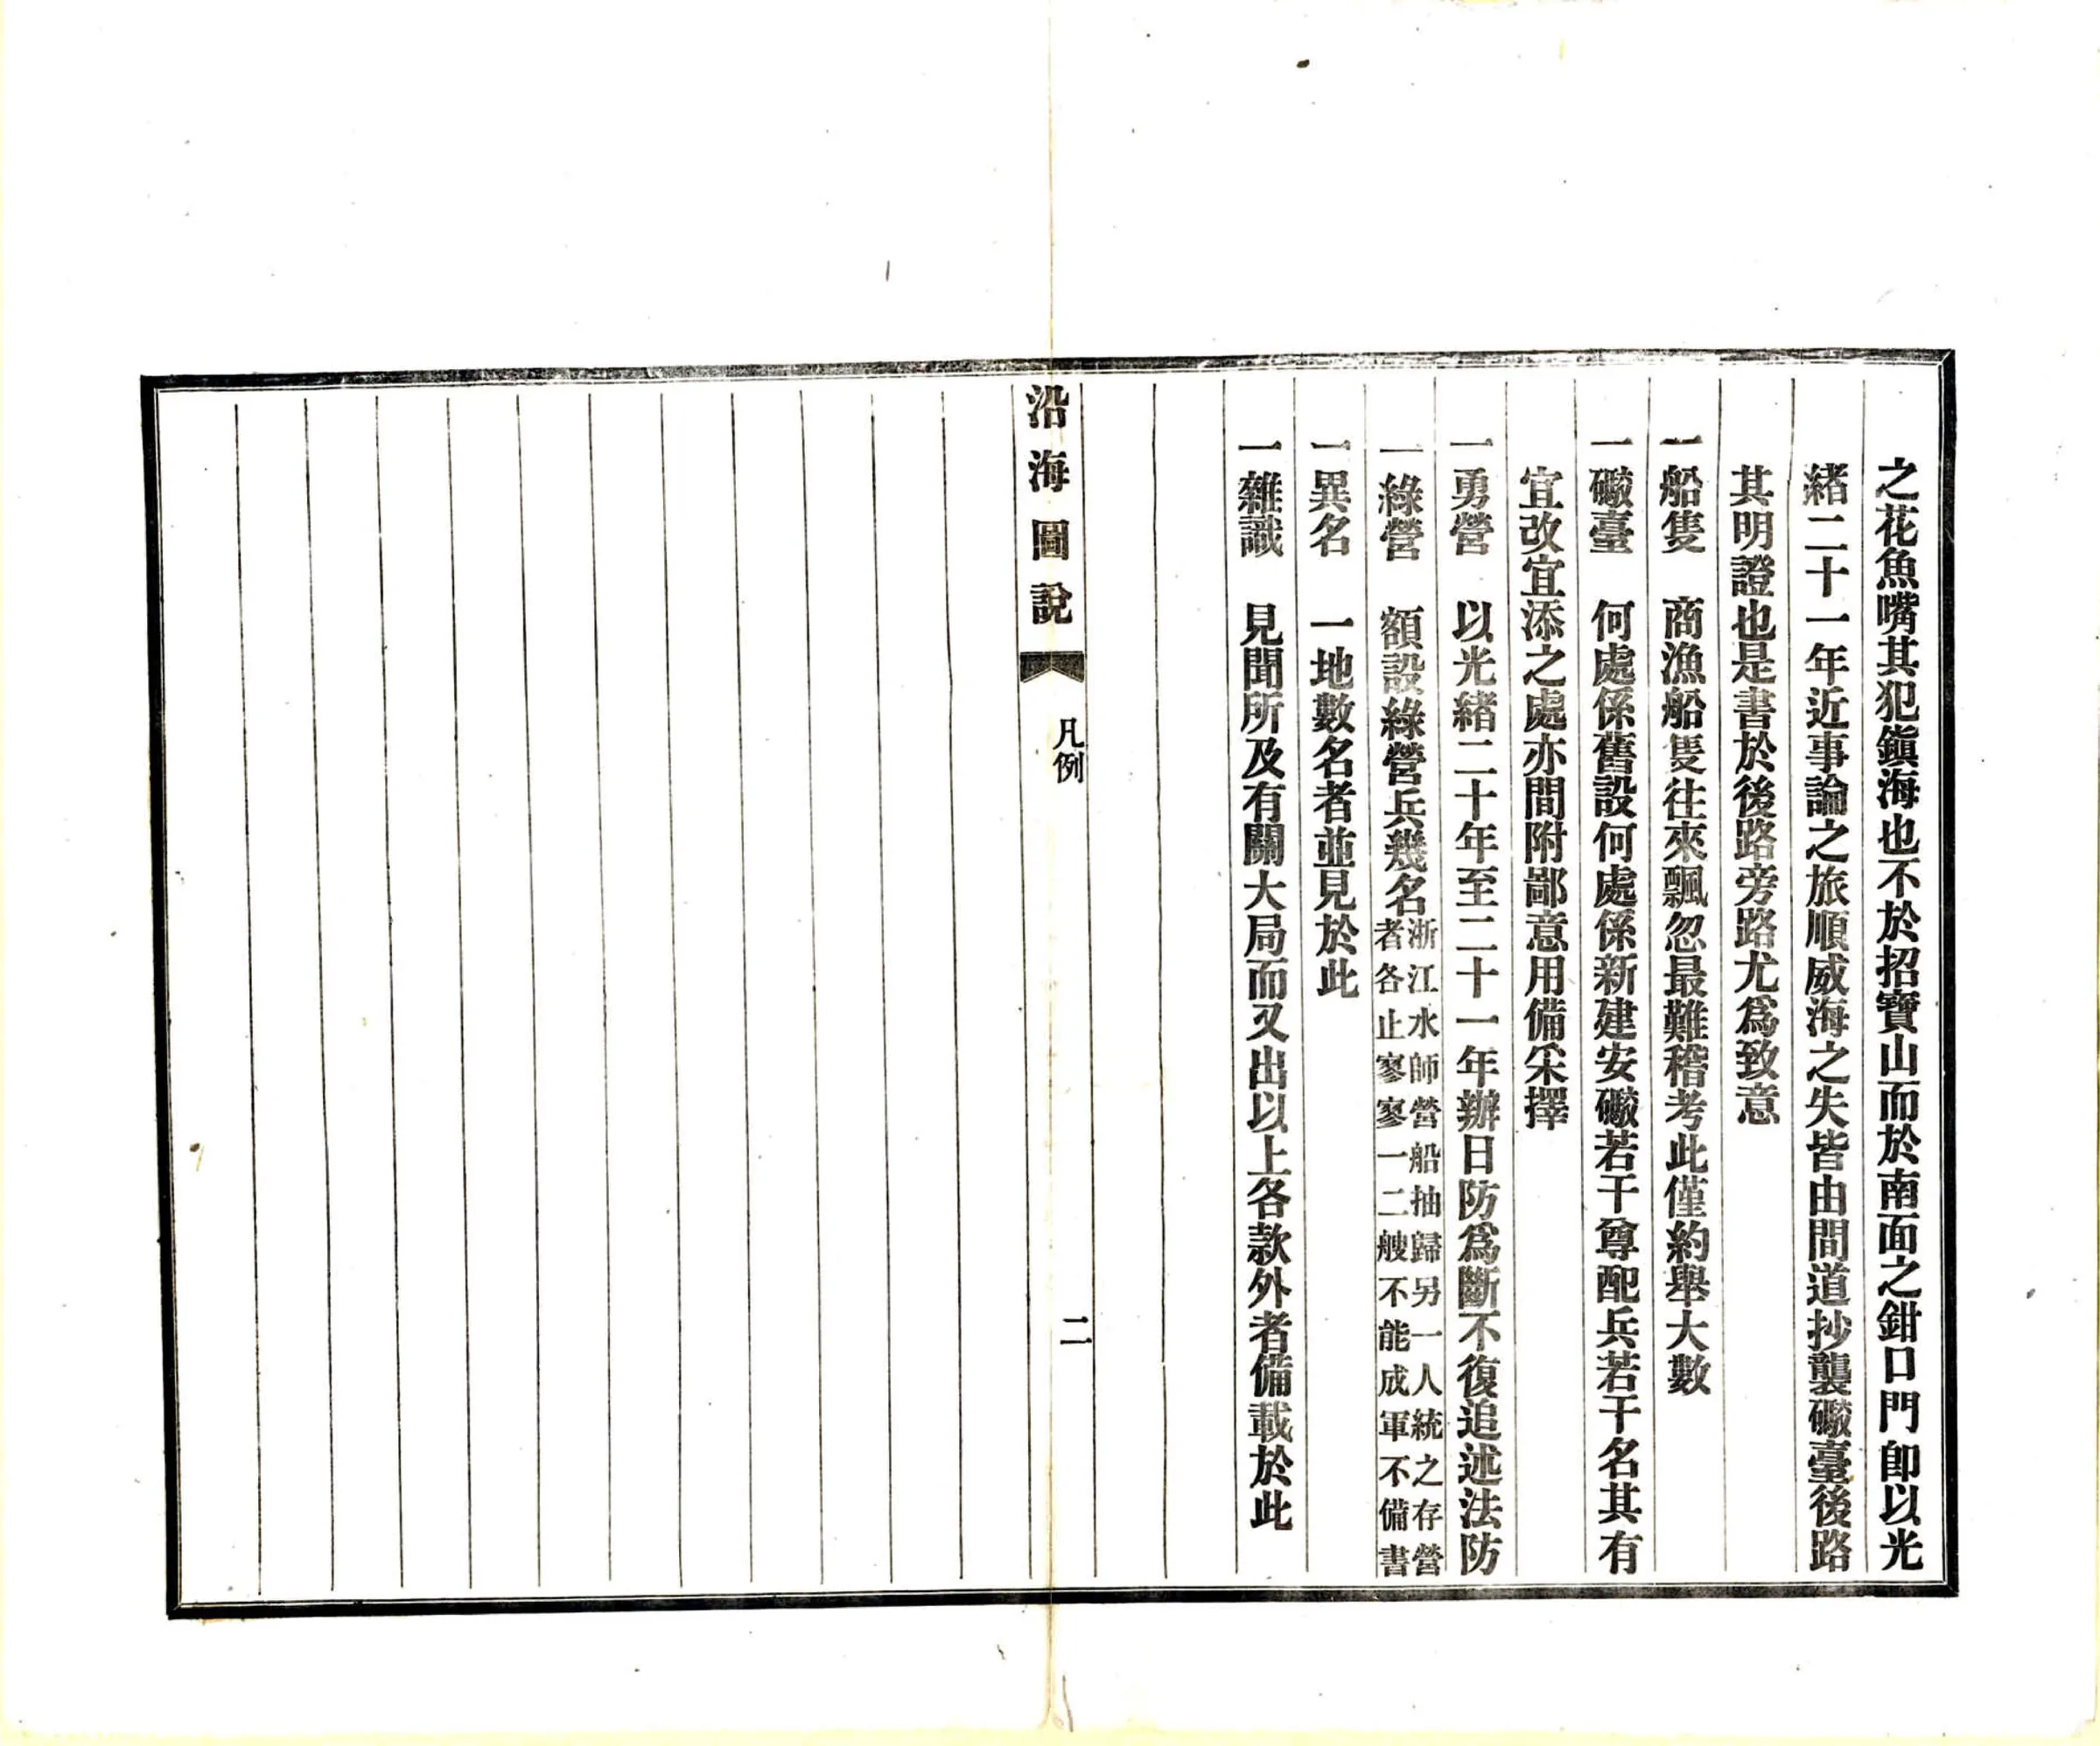 之花魚嘴其犯鎮海也不於招寶山而於南面之鉗口門卽以光
緒二十一年近事論之旅順威海之失皆由間道抄襲礮臺後路
其明證也是書於後路旁路尤爲致意
一船隻　商漁船隻往來飄忽最難稽考此僅約舉大數
一礮臺　何處係舊設何處係新建安礮若干尊配兵若干名其有
宜改宜添之處亦間附鄙意用備采擇
一勇營　以光緒二十年至二十一年辦日防爲斷不復追述法防
一綠營　額設綠營兵幾名浙江水師營船抽歸另一人統之存營
者各止寥寥一二艘不能成軍不備書
一異名　一地數名者並見於此
一雜識　見聞所及有關大局而又出以上各款外者備載於此
沿海圖說
凡例
二